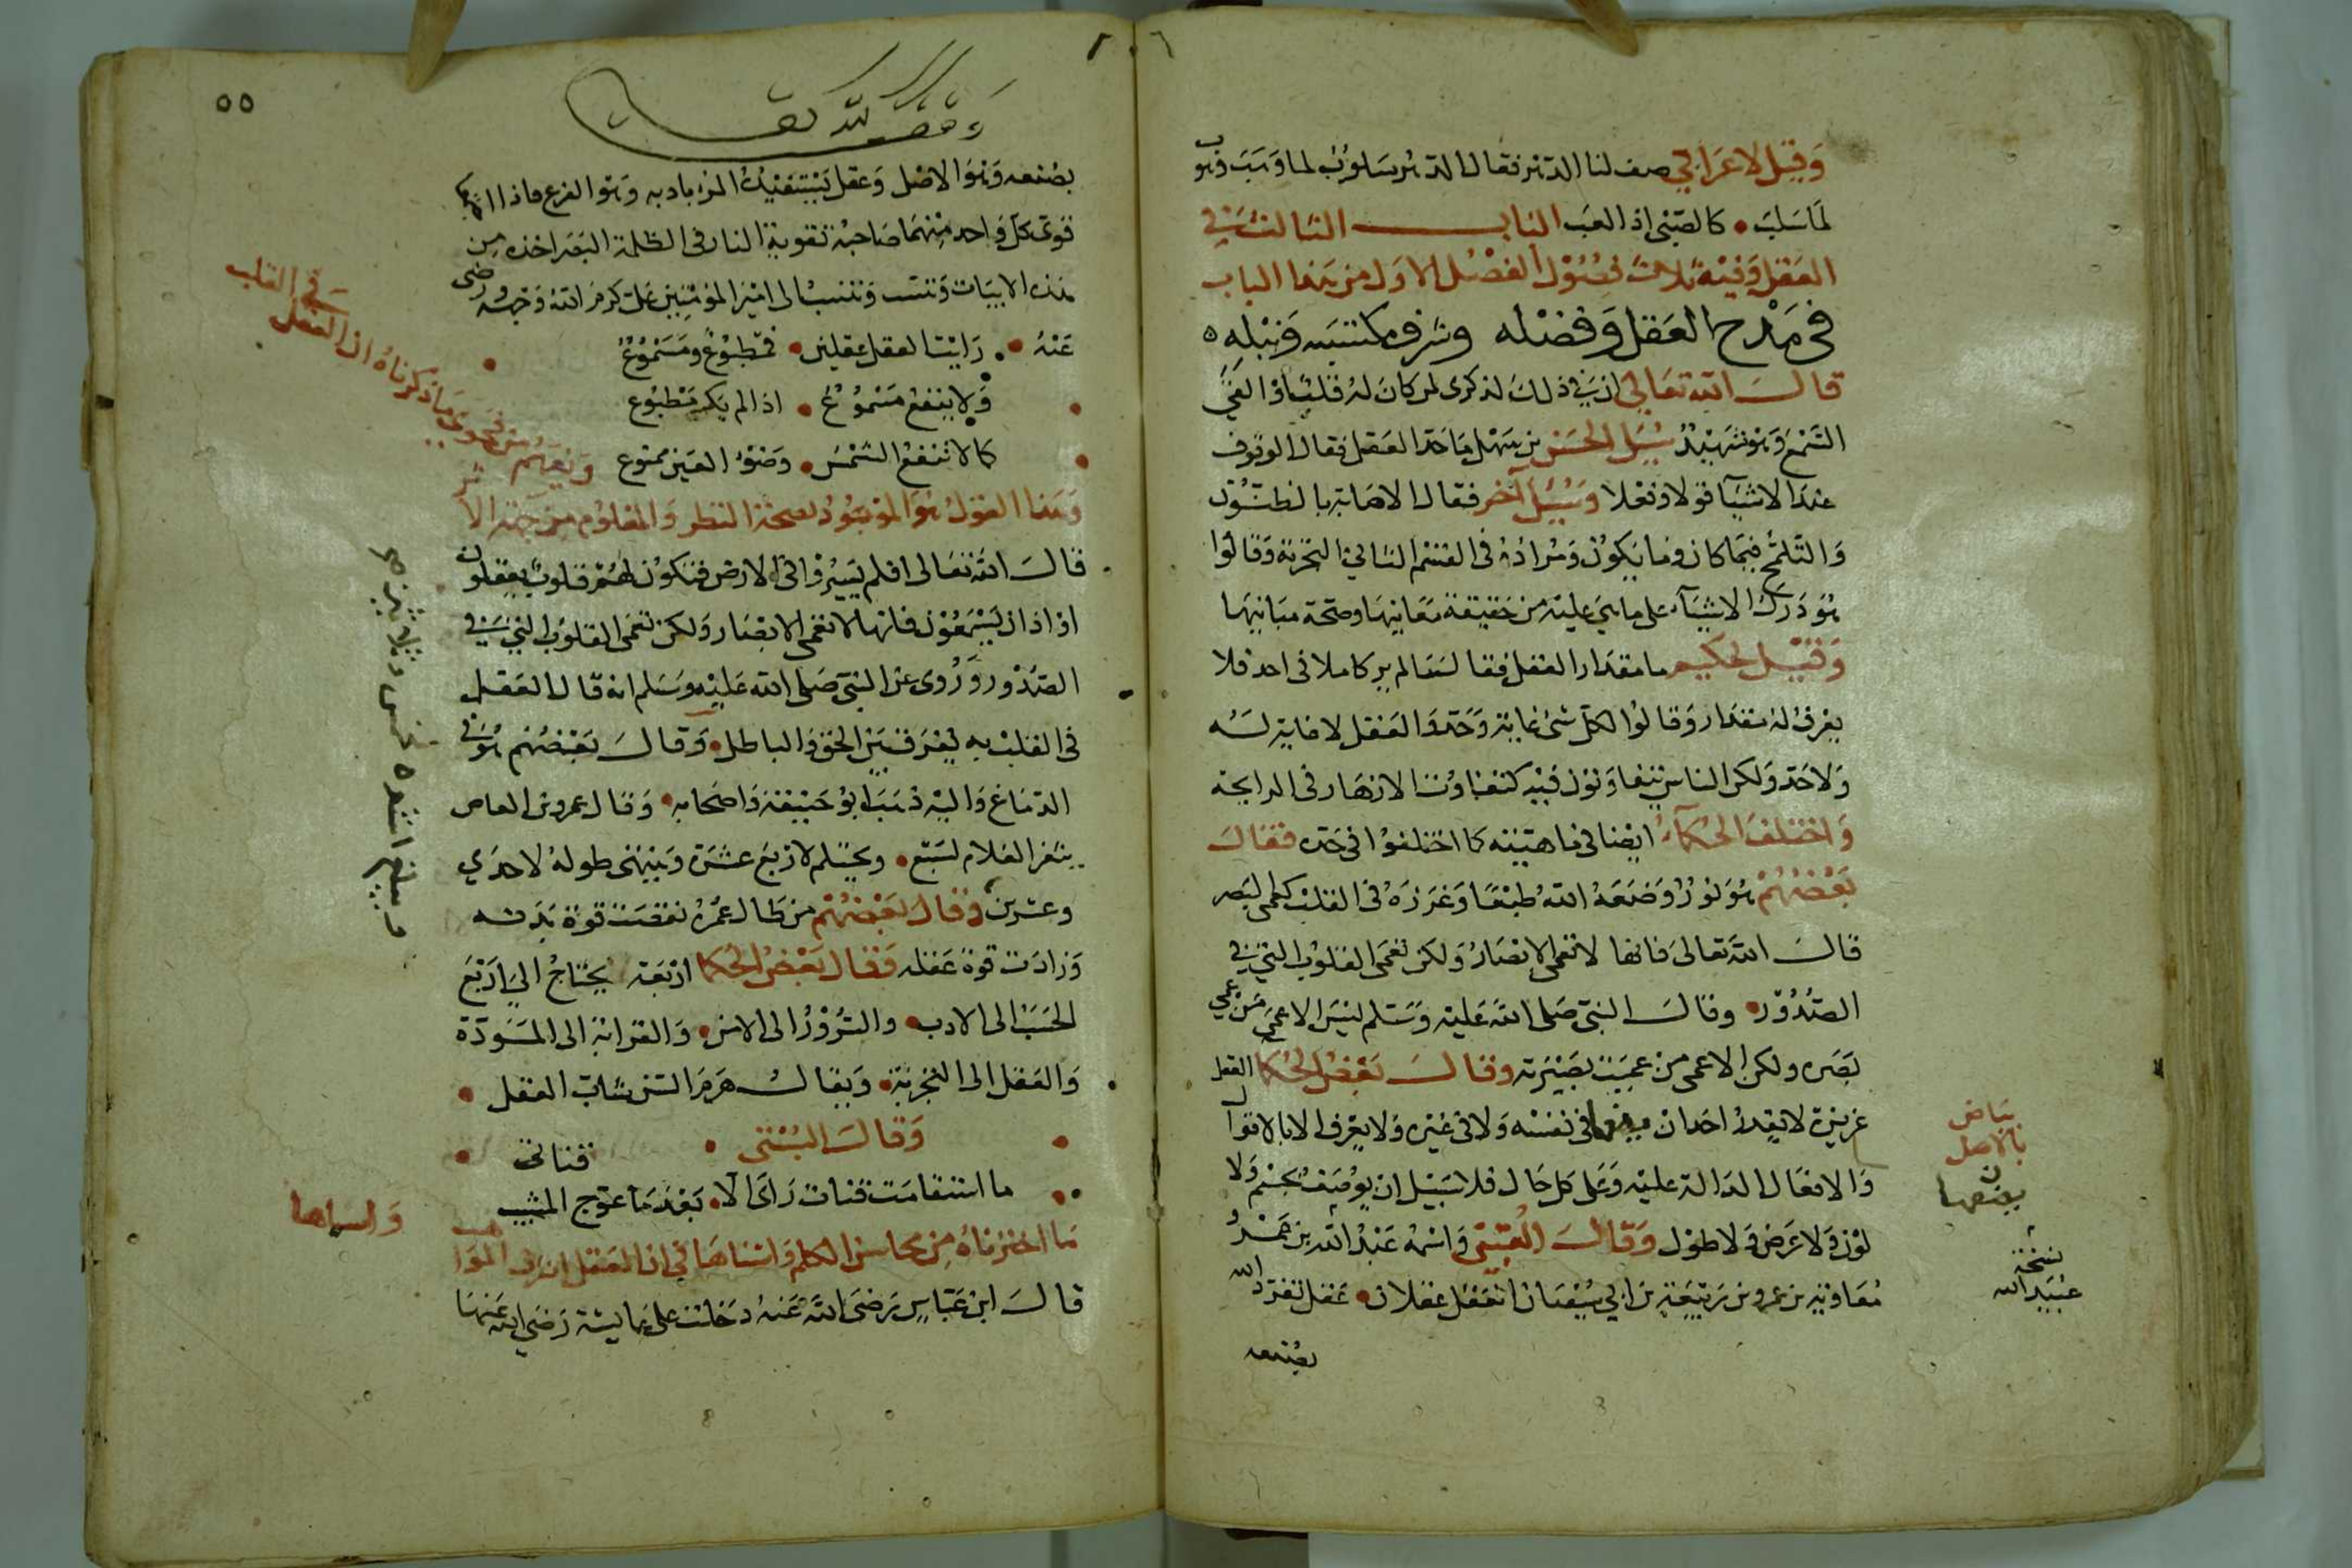 وقيل لاعرابي صف لنا الدهر فقال الدهر سلوب لما وهب وهوب
لما سلب • كالصبي اذا لعب الباب الثالث في
العقل وفيه ثلاث فصول الفصل الاول من هذا الباب
في مدح العقل وفضله وشرف مكتسبه ونبله
قال الله تعالى ان في ذلك لذكرى لمن كان له قلب او القى
السمع وهو شهيد سئل الحسن بن سهل ما حد العقل فقال الوقوف
عند الاشيآ قولا وفعلا وسئل آخر فقال الاصابة بالظنون
والتلمح فيما كان وما يكون ومراده في القسم الثاني التجربة وقالوا
هو درك الاشيآء على ما هي عليه من حقيقة معانيها وصحة مبانيها
وقيل لحكيم ما مقدار العقل فقال لم ير كاملا في احد فلا
يعرف له مقدار وقالوا لكل شئ غاية وحد والعقل لا غاية له
ولا حد ولكن الناس يتفاوتون فيه كتفاوت الازهار في الرايحة
واختلف الحكمآء ايضا في ماهيته كما اختلفوا في حده فقال
بعضهم هو نور وضعه الله طبعا وغرزه في القلب كالبصر
قال الله تعالى فانها لا تعمى الابصار ولكن تعمى القلوب التي في
الصدور • وقال النبي صلى الله عليه وسلم ليس الاعمى من عمي
بصره ولكن الاعمى من عميت بصيرته وقال بعض الحكما العقل
غريزة لا يقدر احد ان يصفها في نفسه ولا في غيره ولا يعرف الا بالاقوال
والافعال الدالة عليه وعلى كل حال فلا سبيل ان يوصف بجسم ولا
لون ولا عرض ولا طول وقال العتبي واسمه عبد الله بن محمد
معاوية بن عمرو بن ربيعة بن ابي سفيان العقل عقلان • عقل تفرد الله
بصنعه
بياض
بالاصل
يصفها
نسخة
عبيد الله
٥٥
وقف لله تعالى
بصنعه وهو الاصل وعقل يستفيده المرء بادبه وهو الفرع فاذا اجتمعا
قوى كل واحد منهما صاحبه تقوية النار في الظلمة البصر اخذه من
هذه الابيات وتنسب الى امير المؤمنين علي كرم الله وجهه ورضى
عنه • رايت العقل عقلين • فمطبوع ومسموع
ولا ينفع مسموع • اذا لم يكن مطبوع
كما لا تنفع الشمس • وضوء العين ممنوع
وهذا القول هو الموجود لصحة النظر والمعلوم من جهة الاثر
ويفهم من فحوى ما ذكرناه ان العقل في القلب
قال الله تعالى افلم يسيروا في الارض فتكون لهم قلوب يعقلون
او اذان يسمعون فانها لا تعمى الابصار ولكن تعمى القلوب التي في
الصدور وروى عن النبي صلى الله عليه وسلم انه قال العقل
في القلب به يفرف بين الحق والباطل • وقال بعضهم هو في
الدماغ واليه ذهب ابو حنيفة واصحابه • وقال عمرو بن العاص
يثغر الغلام لسبع • ويحتلم لاربع عشرة وينتهى طوله لاحدي
وعشرين وقال بعضهم من طال عمره نقصت قوة بدنه
وزادت قوة عقله وقال بعض الحكما اربعة يحتاج الي اربع
الحسب الى الادب • والسرور الى الامن • والقرابة الى المودة
والعقل الى التجربة • ويقال هرم السن شباب العقل •
وقال البستى •
ما استقامت قناة رائى الا • بعد ما عوج المشيب قناتى
ما اخترناه من محاسن الكلم واسناها في ان العقل اشرف المواهب واسماها
قال ابن عباس رضى الله عنه دخلت على عايشة رضى الله عنها